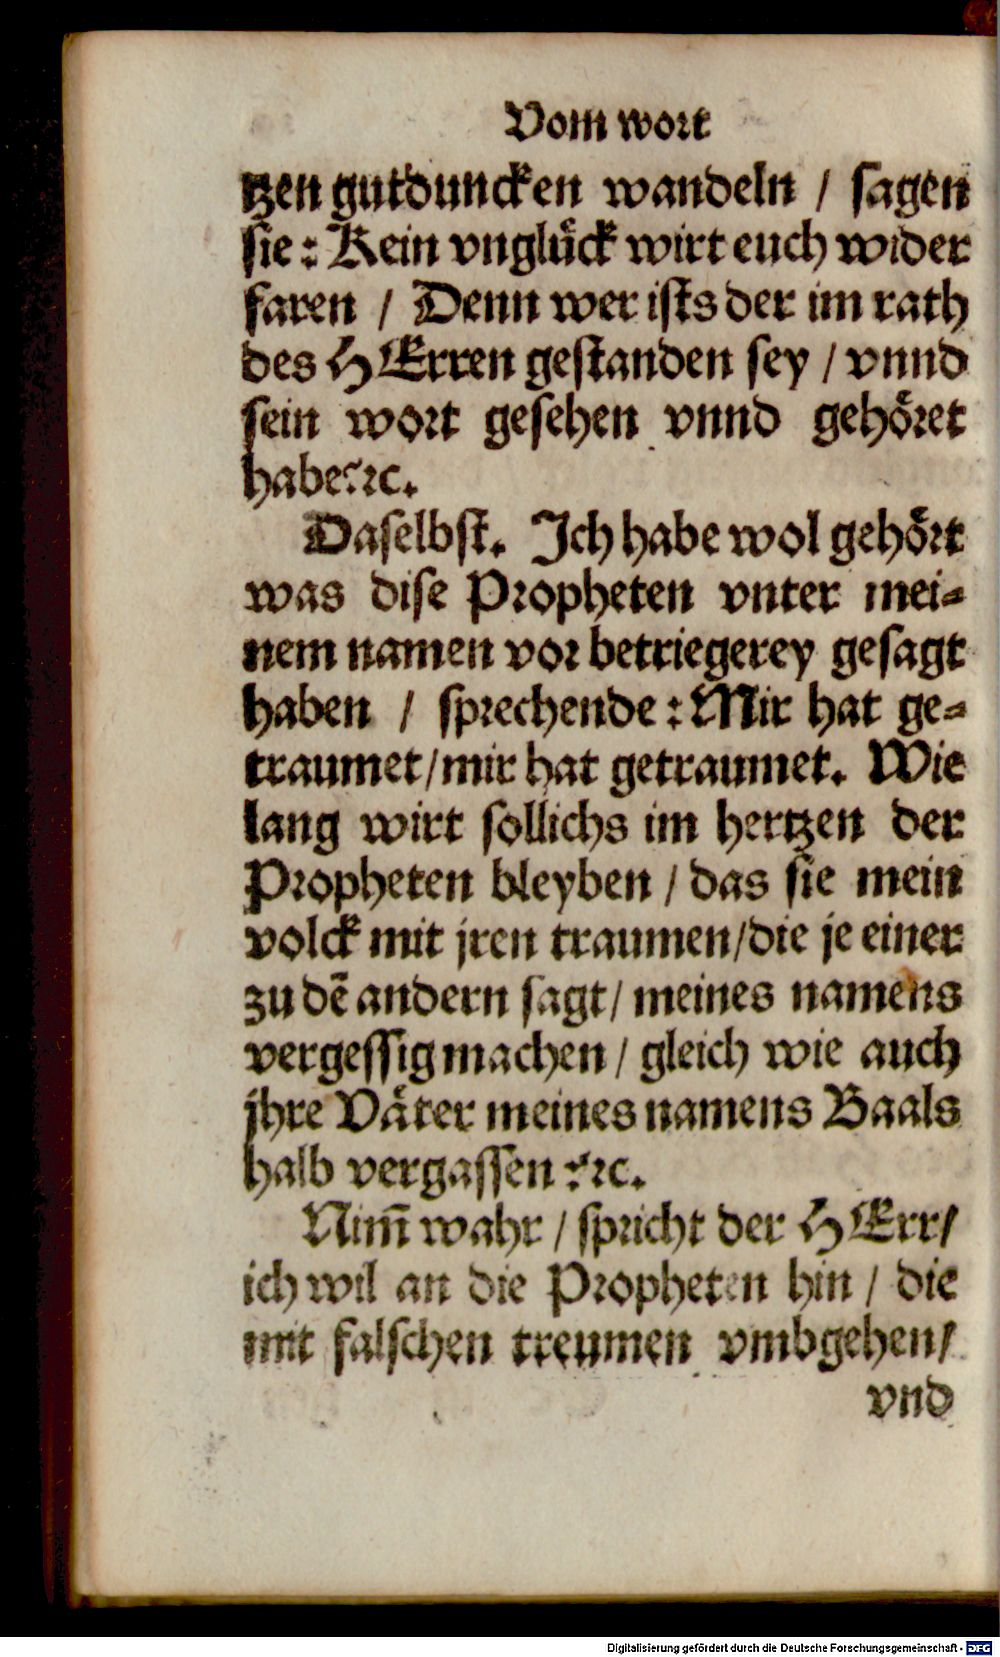 Vom wort
tzen gutduncken wandeln / sagen
sie: Kein vnglück wirt euch wider
faren / Denn wer ists der im rath
des HErren gestanden sey / vnnd
sein wort gesehen vnnd gehöret
habe? ꝛc.
Daselbst. Ich habe wol gehört
was dise Propheten vnter mei⸗
nem namen vor betriegerey gesagt
haben / sprechende: Mir hat ge⸗
traumet/ mir hat getraumet. Wie
lang wirt sollichs im hertzen der
Propheten bleyben / das sie mein
volck mit jren traumen/ die je einer
zu dē andern sagt/ meines namens
vergessig machen / gleich wie auch
jhre Väter meines namens Baals
halb vergassen? ꝛc.
Nim̄ wahr / spricht der HErr/
ich wil an die Propheten hin / die
mit falschen treumen vmbgehen/
vnd
Digitalisierung gefördert durch die Deutsche Forschungsgemeinschaft - DFG